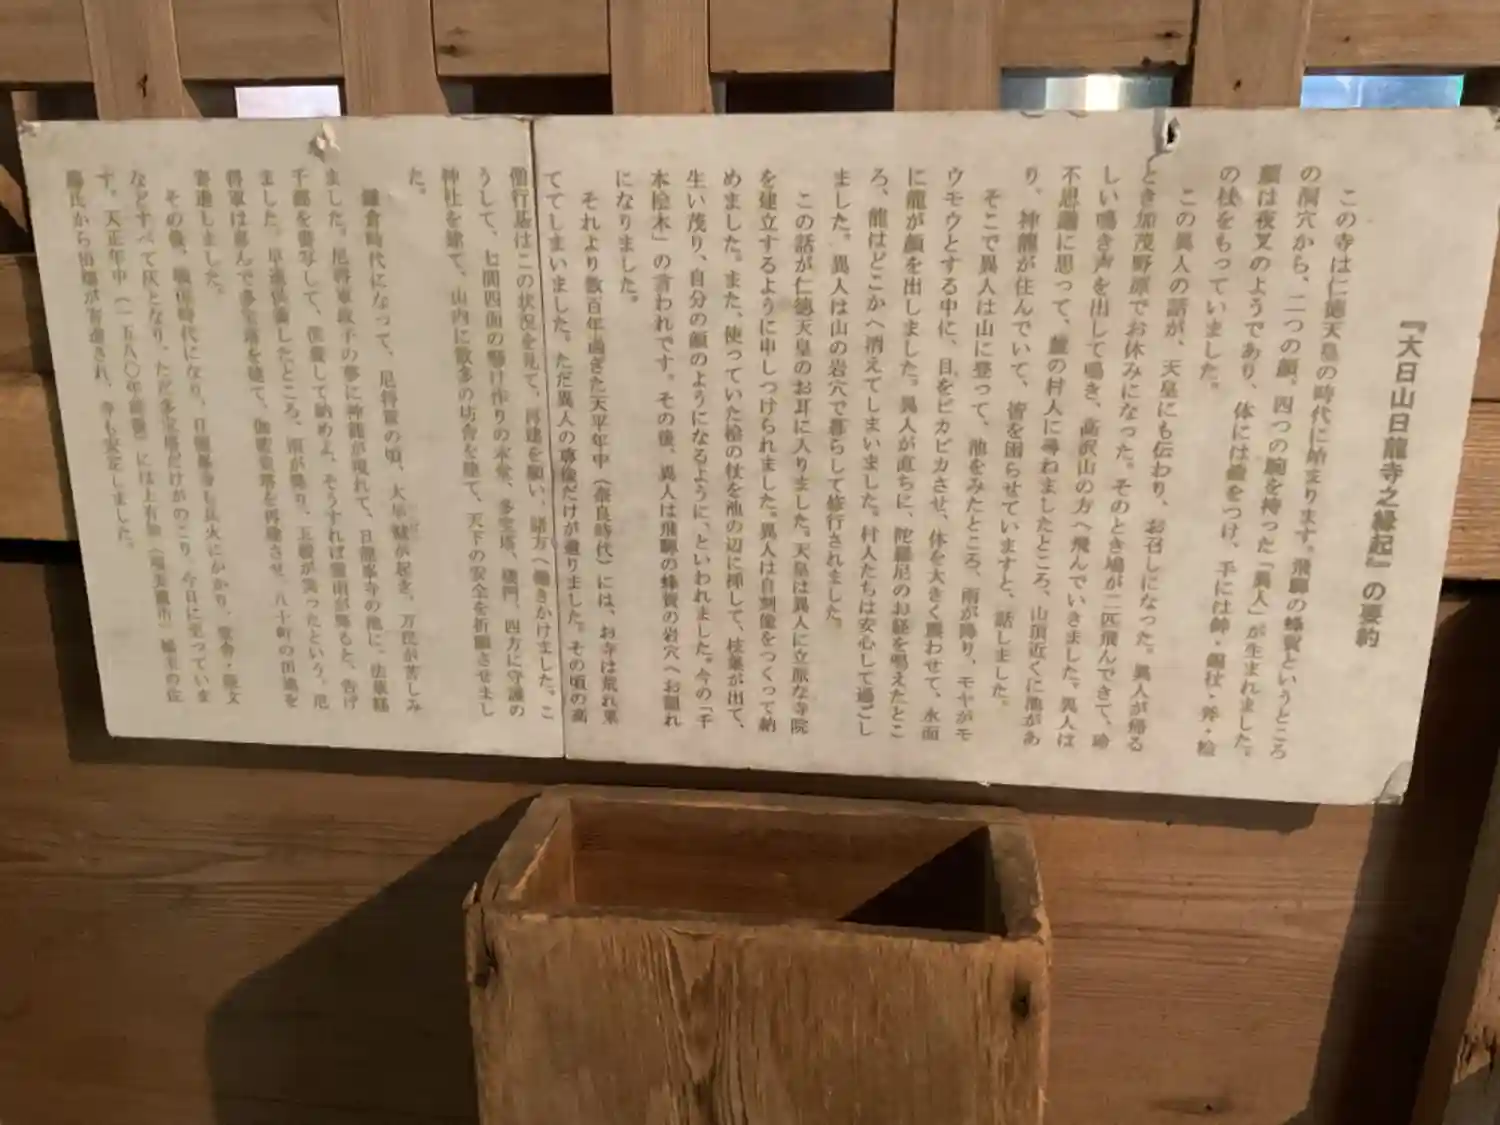 『大日山日龍寺之縁起』の要約
この寺は仁徳天皇の時代に始まります。飛騨の蜂賀というところ
の洞穴から、二つの顔、四つの腕を持った「異人」が生まれました。
顔は夜叉のようであり、体には鎧をつけ、手には鉾・錫杖・斧・桧
の杖をもっていました。
この異人の話が、天皇にも伝わり、お召しになった。異人が帰る
とき加茂野原でお休みになった。そのとき鳩が二匹飛んできて、怜
しい鳴き声を出して鳴き、高沢山の方へ飛んでいきました。異人は
不思議に思って、麓の村人に尋ねましたところ、山頂近くに池があ
り、神龍が住んでいて、皆を困らせていますと、話しました。
そこで異人は山に登って、池をみたところ、雨が降り、モヤがモ
ウモウとする中に、目をピカピカさせ、体を大きく震わせて、水面
に龍が顔を出しました。異人が直ちに、陀羅尼のお経を唱えたとこ
ろ、龍はどこかへ消えてしまいました。村人たちは安心して過ごし
ました。異人は山の岩穴で暮らして修行されました。
この話が仁徳天皇のお耳に入りました。天皇は異人に立派な寺院
を建立するように申しつけられました。異人は自刻像をつくって納
めました。また、使っていた桧の杖を池の辺に挿して、枝葉が出て、
生い茂り、自分の顔のようになるように、といわれました。今の「千
本桧木」の言われです。その後、異人は飛騨の蜂賀の岩穴へお隠れ
になりました。
それより数百年過ぎた天平年中（奈良時代）には、お寺は荒れ果
ててしまいました。ただ異人の尊像だけが遺りました。その頃の高
僧行基はこの状況を見て、再建を願い、諸方へ働きかけました。こ
うして、七間四面の懸け作りの本堂、多宝塔、楼門、四方に守護の
神社を建て、山内に数多の坊舎を建て、天下の安全を祈願させまし
た。
鎌倉時代になって、尼将軍の頃、大旱魃が起き、万民が苦しみ
ました。尼将軍政子の夢に神龍が現れて、日龍峯寺の池に、法華経
千部を書写して、供養して納めよ、そうすれば雷雨が降ると、告げ
ました。早速供養したところ、雨が降り、五穀が実ったという。尼
将軍は喜んで多宝塔を建て、伽藍堂塔を再建させ、八十町の田地を
寄進しました。
その後、戦国時代になり、日龍峯寺も兵火にかかり、堂舎・経文
などすべて灰となり、ただ多宝塔だけがのこり、今日に至っていま
す。天正年中（一五八〇年前後）には上有知（現美濃市）城主の佐
藤氏から田畑が寄進され、寺も安定しました。